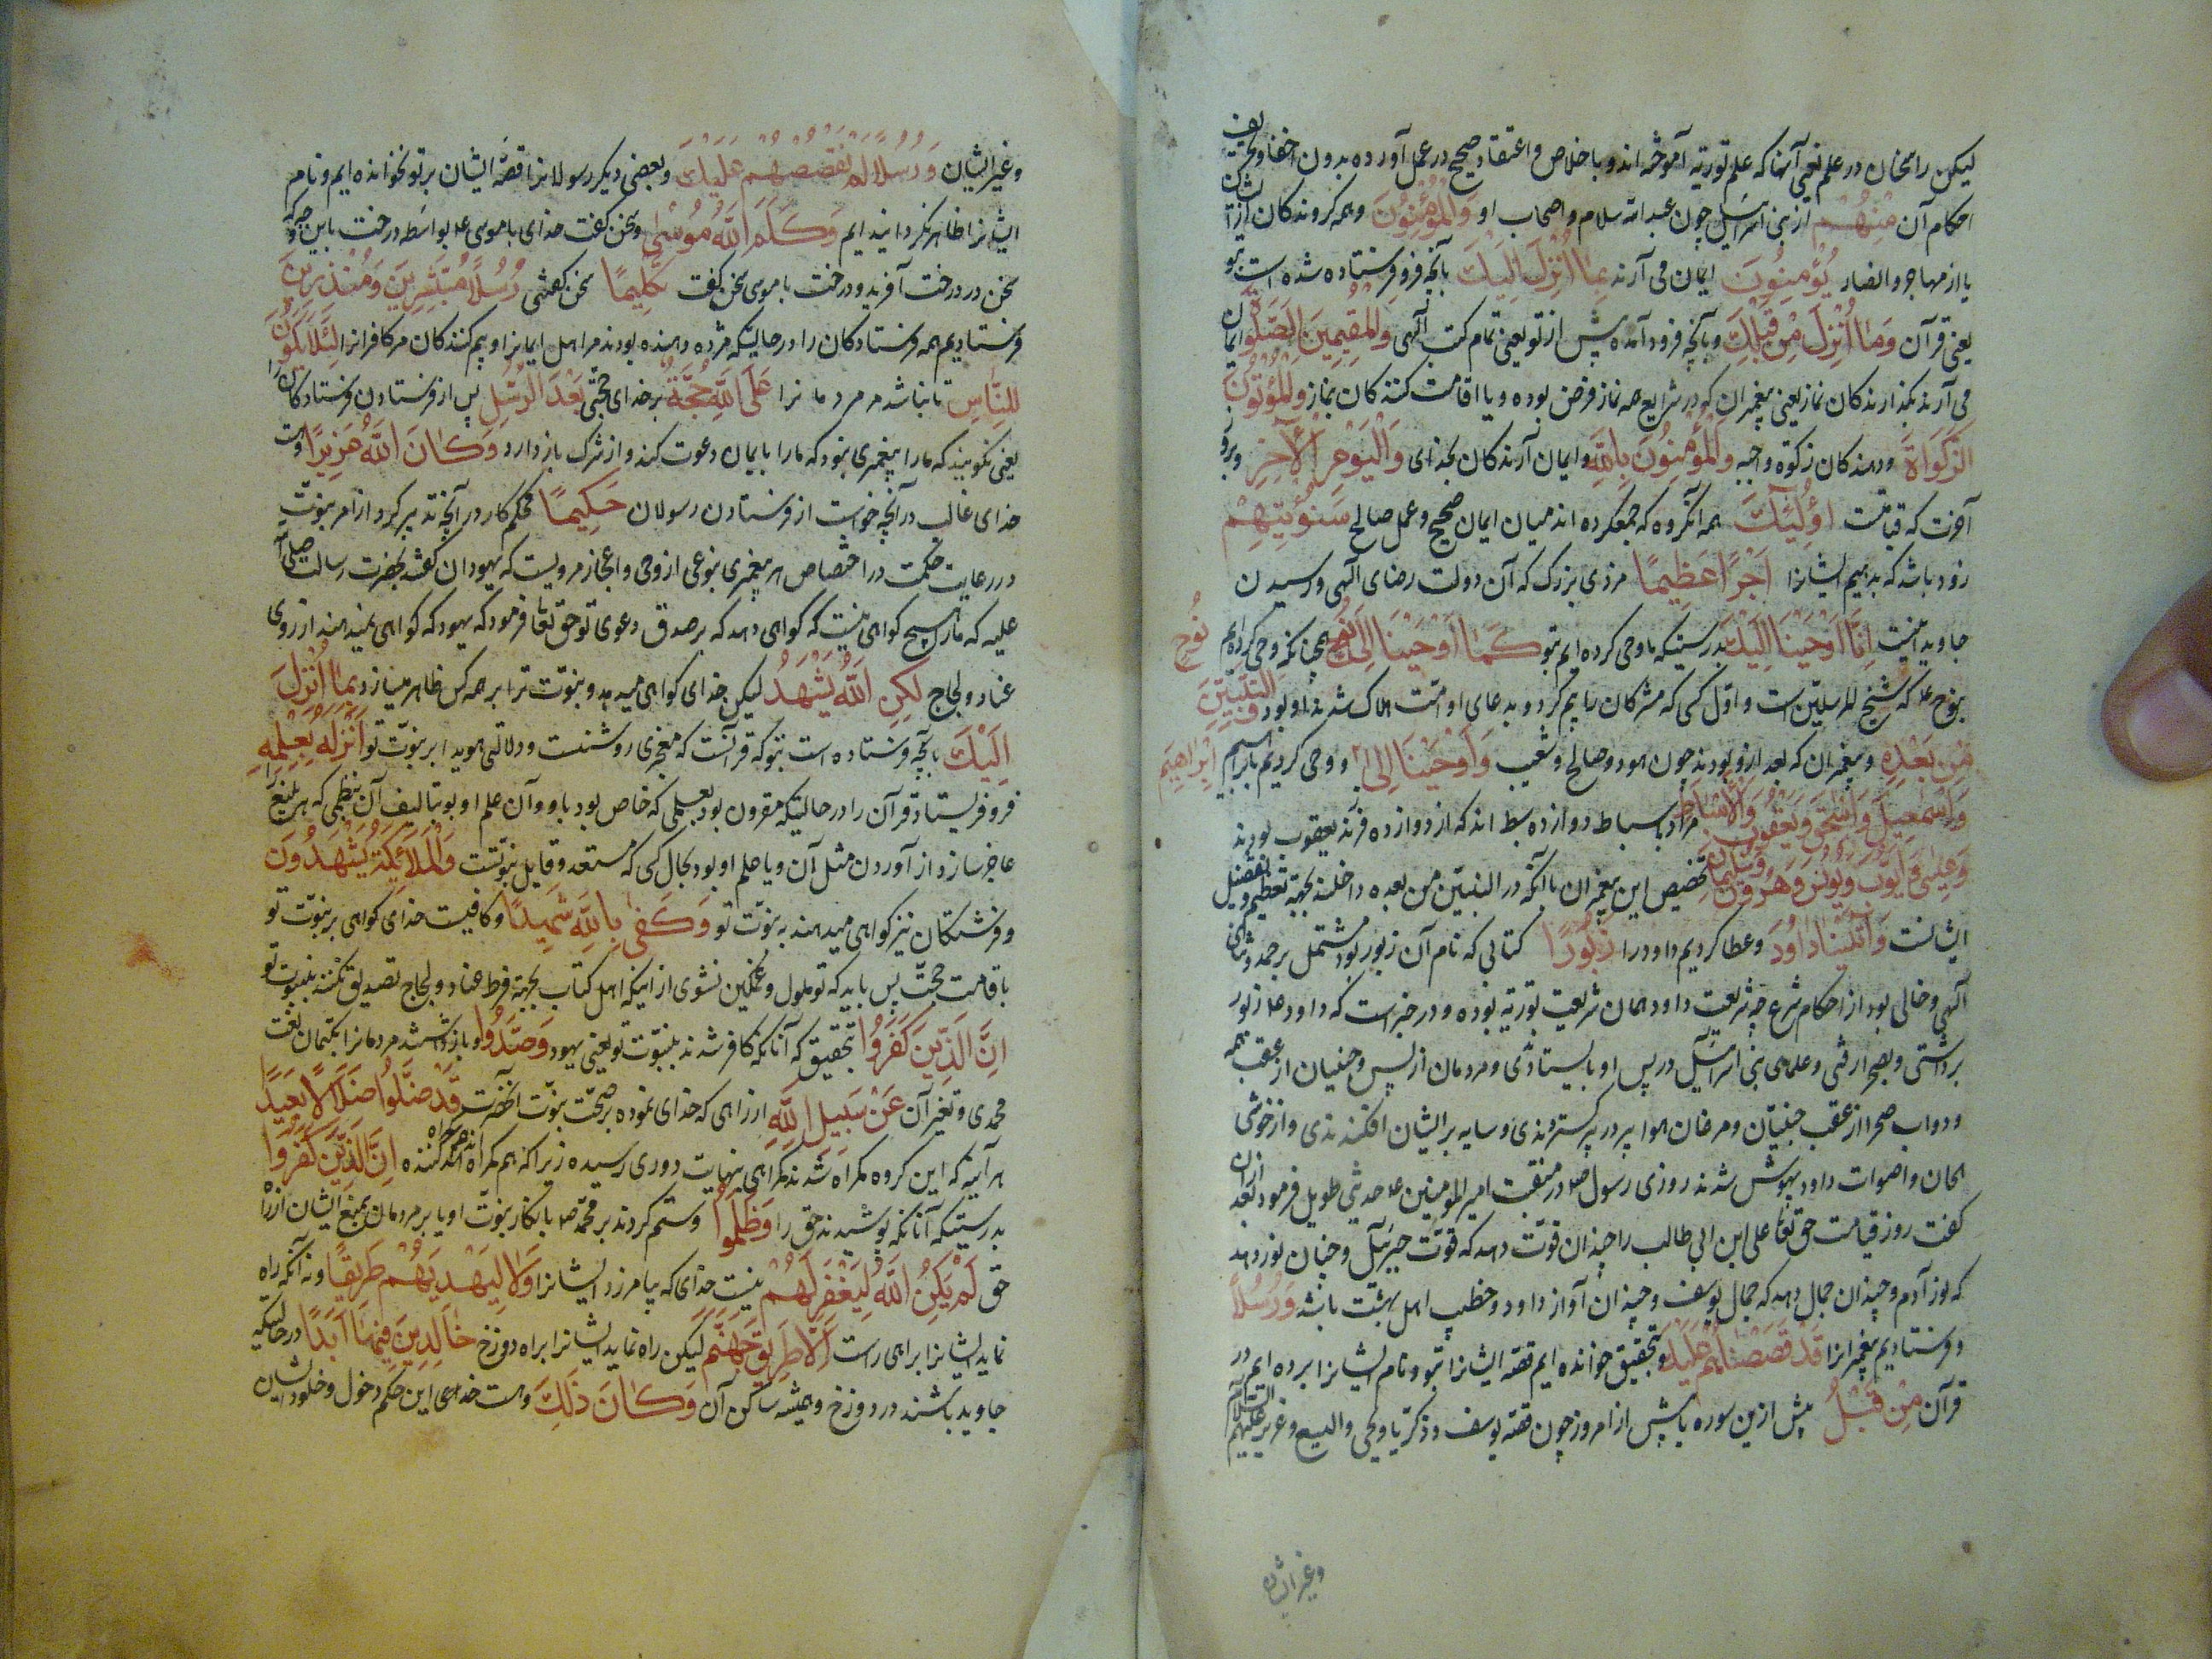 لیکن راسخان در علم یعنی آنها که علم توریة آموخته اند و باخلاص و اعتقاد صحیح در عمل آورده بدون اخفا و تحریف
احکام آن مِنْهُمْ از بنی اسرائیل چون عبدالله سلام و اصحاب او وَالْمُؤْمِنُونَ و همه کروندکان
یا از مهاجر و انصار یُؤْمِنُونَ ایمان می آرند بِمَا اُنْزِلَ اِلَیْكَ بآنچه فرو فرستاده شده است بتو
یعنی قرآن وَمَا اُنْزِلَ مِنْ قَبْلِكَ و بآنچه فرود آمده پیش از تو یعنی تمام کتب الهی وَالْمُقِیمِینَ الصَّلٰوةَ و ایمان
می آرند بکذارندکان نماز یعنی پیغمبران که در شرایع همه نماز فرض بوده و یا اقامت کنندکان نماز وَالْمُؤْتُونَ
الزَّکَوٰاةَ و دهندکان زکوة واجبه وَالْمُؤْمِنُونَ بِاللّٰهِ و ایمان آرندکان بخدای وَالْیَوْمِ الْاٰخِرِ و بروز
آخرت که قیامتست اُولٰئِكَ همه آنکروه که جمعکرده اند میان ایمان صحیح و عمل صالح سَنُؤْتِیهِمْ
زود باشد که بدهیم ایشانرا اَجْرًا عَظِیمًا مزدی بزرک که آن دولت رضای الهی و رسیدن
جاوید انیست اِنَّا اَوْحَیْنَا اِلَیْكَ بدرستیکه ما وحی کرده ایم بتو کَمَا اَوْحَیْنَا اِلیٰ نُوحٍ همچنانکه وحی کرده ایم
بنوح علا که شیخ المرسلین است و اول کسی که مشرکان را بیم کرد و بدعای او امت هلاک شدند او بود وَالنَّبِیّٖنَ
مِنْ بَعْدِهٖ و پیغمبران که بعد ازو بودند چون هود و صالح و شعیب وَاَوْحَیْنَا اِلیٰ و وحی کردیم بابراهیم اِبْرَاهِیمَ
وَاِسْمٰعِیلَ وَاِسْحٰقَ وَیَعْقُوبَ وَالْاَسْبَاطِ مراد باسباط دوازده سبط اند که از دوازده فرزند یعقوب بودند
وَعِیسٰی وَاَیُّوبَ وَیُونُسَ وَهٰرُونَ وَسُلَیْمٰنَ تخصیص این پیغمبران با آنکه در النبیین من بعده داخلند بجهة تعظیم و تفضیل
ایشانست وَاٰتَیْنَا دَاوُدَ و عطا کردیم داود را زَبُورًا کتابی که نام آن زبور بود مشتمل بر حمد و ثنای
الهی و خالی بود از احکام شرع چه شریعت داود همان شریعت توریة بوده و در خبر است که داود علا زبور
برداشتی و بصحرا رفتی و علمای بنی اسرائیل در پس او بایستادی و مردمان از پس و جنیان از عقب همه
و دواب صحرا از عقب جنیان و مرغان هوا پر در پر کستردندی و سایه بر ایشان افکندندی و از خوشی
الحان و اصوات داود بیهوش شدند روزی رسول صلا در منقبت امیرالمومنین علا حدیثی طویل فرمود بعد ازان
کفت روز قیامت حق تعا علی ابن ابی طالب را چندان قوت دهد که قوت جبرئیل و چنان نور دهد
که نور آدم و چندان جمال دهد که جمال یوسف و چندان آواز داود و خطیب اهل بهشت باشد وَرُسُلًا
و فرستادیم پیغمبرانرا قَدْ قَصَصْنَاهُمْ عَلَیْكَ و بتحقیق خوانده ایم قصه ایشانرا بتو و نام ایشانرا برده ایم در
قرآن مِنْ قَبْلُ پیش ازین سوره یا پیش از امروز چون قصه یوسف و زکریا و یحیی و الیسع و غیر علیهم السلام
وغیر ایشان
وغیر ایشان وَرُسُلًا لَمْ نَقْصُصْهُمْ عَلَیْكَ و بعضی دیکر رسولانرا قصه ایشان بر تو نخوانده ایم و نام
ایشانرا ظاهر نکردانیده ایم وَکَلَّمَ اللّٰهُ مُوسٰی و سخن کفت خدای با موسی علا بواسطه درخت باین وجه که
سخن در درخت آفرید و درخت با موسی سخن کفت تَکْلِیمًا سخن کفتنی رُسُلًا مُبَشِّرِینَ وَمُنْذِرِینَ
فرستادیم همه فرستادکان را در حالتیکه مژده دهنده بودند مر اهل ایمانرا و بیم کنندکان مر کافرانرا لِئَلَّا یَکُونَ
لِلنَّاسِ تا نباشد مر مردمانرا عَلَی اللّٰهِ حُجَّةٌ بر خدای حجتی بَعْدَ الرُّسُلِ پس از فرستادن فرستادکانرا
یعنی نکویند که ما را پیغمبری نبود که ما را بایمان دعوت کند و از شرک باز دارد وَکَانَ اللّٰهُ عَزِیزًا و هست
خدای غالب در آنچه خواست از فرستادن رسولان حَکِیمًا محکم کار در آنچه تدبیر کرد از امر نبوت
در رعایت حکمت در اختصاص هر پیغمبری بنوعی از وحی و اعجاز مرویست که یهودان کفتند بحضرت رسالت صلی الله
علیه که ما را هیچ کواهی نیست که کواهی دهد که بر صدق دعوی تو حق تعا فرمود که یهود که کواهی نمیدهند از روی
عناد و لجاج لٰکِنِ اللّٰهُ یَشْهَدُ لیکن خدای کواهی میدهد و نبوت ترا بر همه کس ظاهر میسازد بِمَا اُنْزِلَ
اِلَیْكَ بآنچه فرستاده است بتو که قرآنست که معجزی روشنست و دلالتی هویدا بر نبوت تو اَنْزَلَهُ بِعِلْمِهٖ
فرو فرستاد قرآن را در حالتیکه مقرون بود بعلمی که خاص بود باو و آن علم او بود بتالیف آن بنظمی که هر بلیغ را
عاجز سازد از آوردن مثل آن و یا علم او بود بحال کسی که مستعد و قابل نبوتست وَالْمَلٰٓئِکَةُ یَشْهَدُونَ
و فرشتکان نیز کواهی میدهند به نبوت تو وَکَفٰی بِاللّٰهِ شَهِیدًا و کافیست خدای کواهی بر نبوت تو
باقامت حجت پس باید که تو ملول و غمکین نشوی از اینکه اهل کتاب بجهة فرط عناد و لجاج تصدیق نکنند بنبوت تو
اِنَّ الَّذِینَ کَفَرُوا بتحقیق که آنانکه کافر شدند بنبوت تو یعنی یهود وَصَدُّوا و باز داشتند مردمانرا بکتمان نعت
محمدی و تغیر آن عَنْ سَبِیلِ اللّٰهِ از راهی که خدای نموده بر صحت نبوت آنحضرت قَدْ ضَلُّوا ضَلَالًا بَعِیدًا
هر آینه که این کروه کمراه شدند کمراهی بنهایت دوری رسیده زیرا که هم کمراه اند هم کمراه کننده اِنَّ الَّذِینَ کَفَرُوا
بدرستیکه آنانکه پوشیدند حق را وَظَلَمُوا و ستم کردند بر محمد صلا بانکار نبوت او یا بر مردمان بمنع ایشان از راه
حق لَمْ یَکُنِ اللّٰهُ لِیَغْفِرَ لَهُمْ نیست خدای که بیامرزد ایشانرا وَلَا لِیَهْدِیَهُمْ طَرِیقًا و نه آنکه راه
نماید ایشانرا براهی راست اِلَّا طَرِیقَ جَهَنَّمَ لیکن راه نماید ایشانرا براه دوزخ خَالِدِینَ فِیهَا اَبَدًا در حالتیکه
جاوید باشند در دوزخ و همیشه ساکن آن وَکَانَ ذٰلِكَ و هست خدای این حکم دخول و خلود ایشان